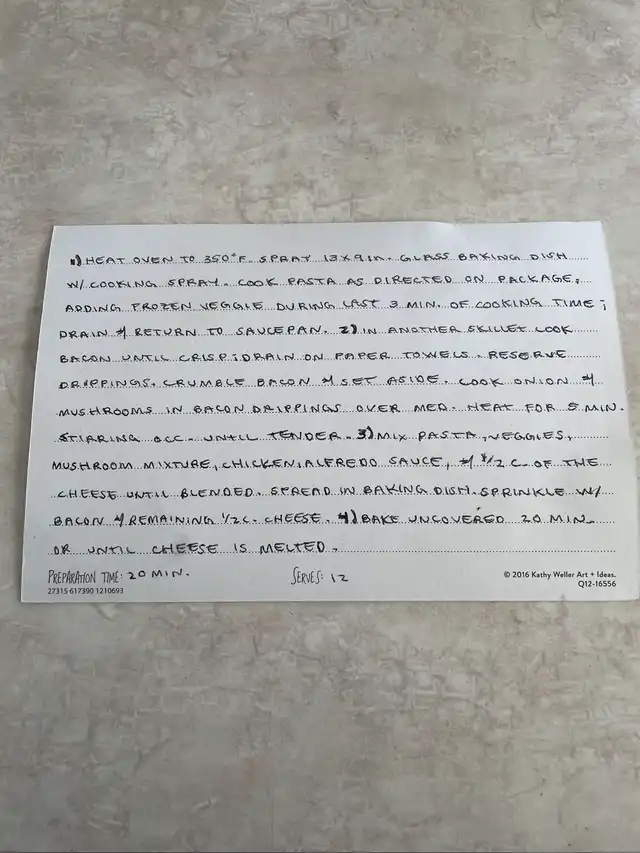 1) HEAT OVEN TO 350°F. SPRAY 13 X 9 IN. GLASS BAKING DISH
W/ COOKING SPRAY. COOK PASTA AS DIRECTED ON PACKAGE,
ADDING FROZEN VEGGIE DURING LAST 3 MIN. OF COOKING TIME;
DRAIN & RETURN TO SAUCEPAN. 2) IN ANOTHER SKILLET COOK
BACON UNTIL CRISP; DRAIN ON PAPER TOWELS. RESERVE
DRIPPINGS. CRUMBLE BACON & SET ASIDE. COOK ONION &
MUSHROOMS IN BACON DRIPPINGS OVER MED. HEAT FOR 5 MIN.
STIRRING OCC. UNTIL TENDER. 3) MIX PASTA, VEGGIES,
MUSHROOM MIXTURE, CHICKEN, ALFREDO SAUCE, & 1/2 C. OF THE
CHEESE UNTIL BLENDED. SPREAD IN BAKING DISH. SPRINKLE W/
BACON & REMAINING 1/2 C. CHEESE. 4) BAKE UNCOVERED 20 MIN.
OR UNTIL CHEESE IS MELTED.
PREPARATION TIME: 20 MIN. SERVES: 12 © 2016 Kathy Weller Art + Ideas.
27315 617390 1210693 Q12-16556